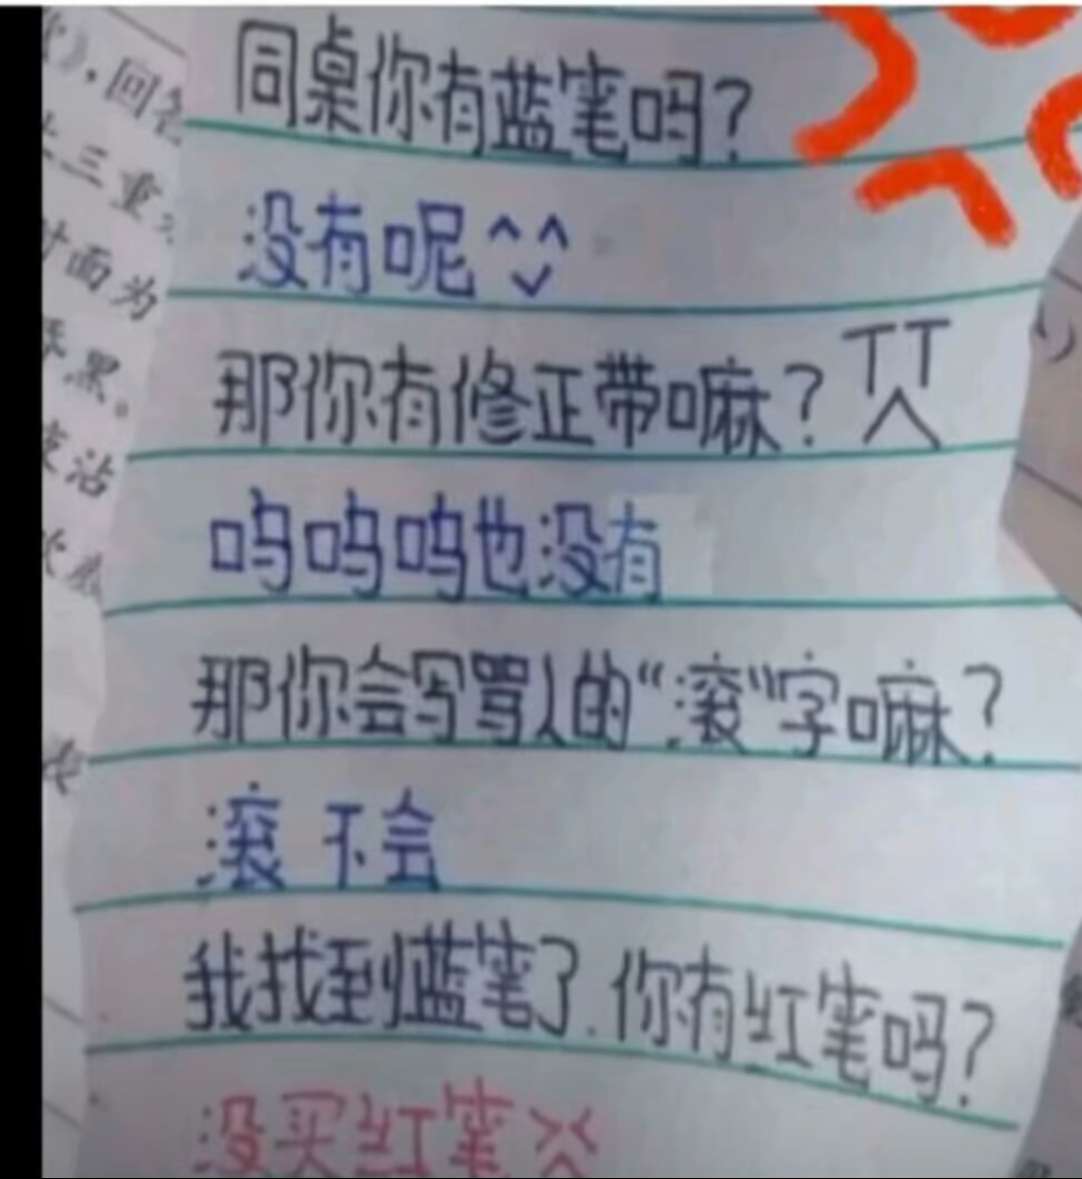 同桌你有蓝笔吗?
没有呢^^
那你有修正带嘛?TT
呜呜呜也没有
那你会写骂人的“滚”字嘛?
滚 不会
我找到蓝笔了.你有红笔吗?
没买红笔
，回答
三重
时面为
黑。
沾